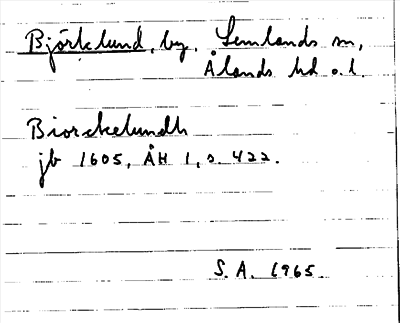 Björklund, by, Lemlands sn,
Ålands hd o. l.
Biorckelundh
jb 1605, ÅH 1, s. 422.
S. A. 1965